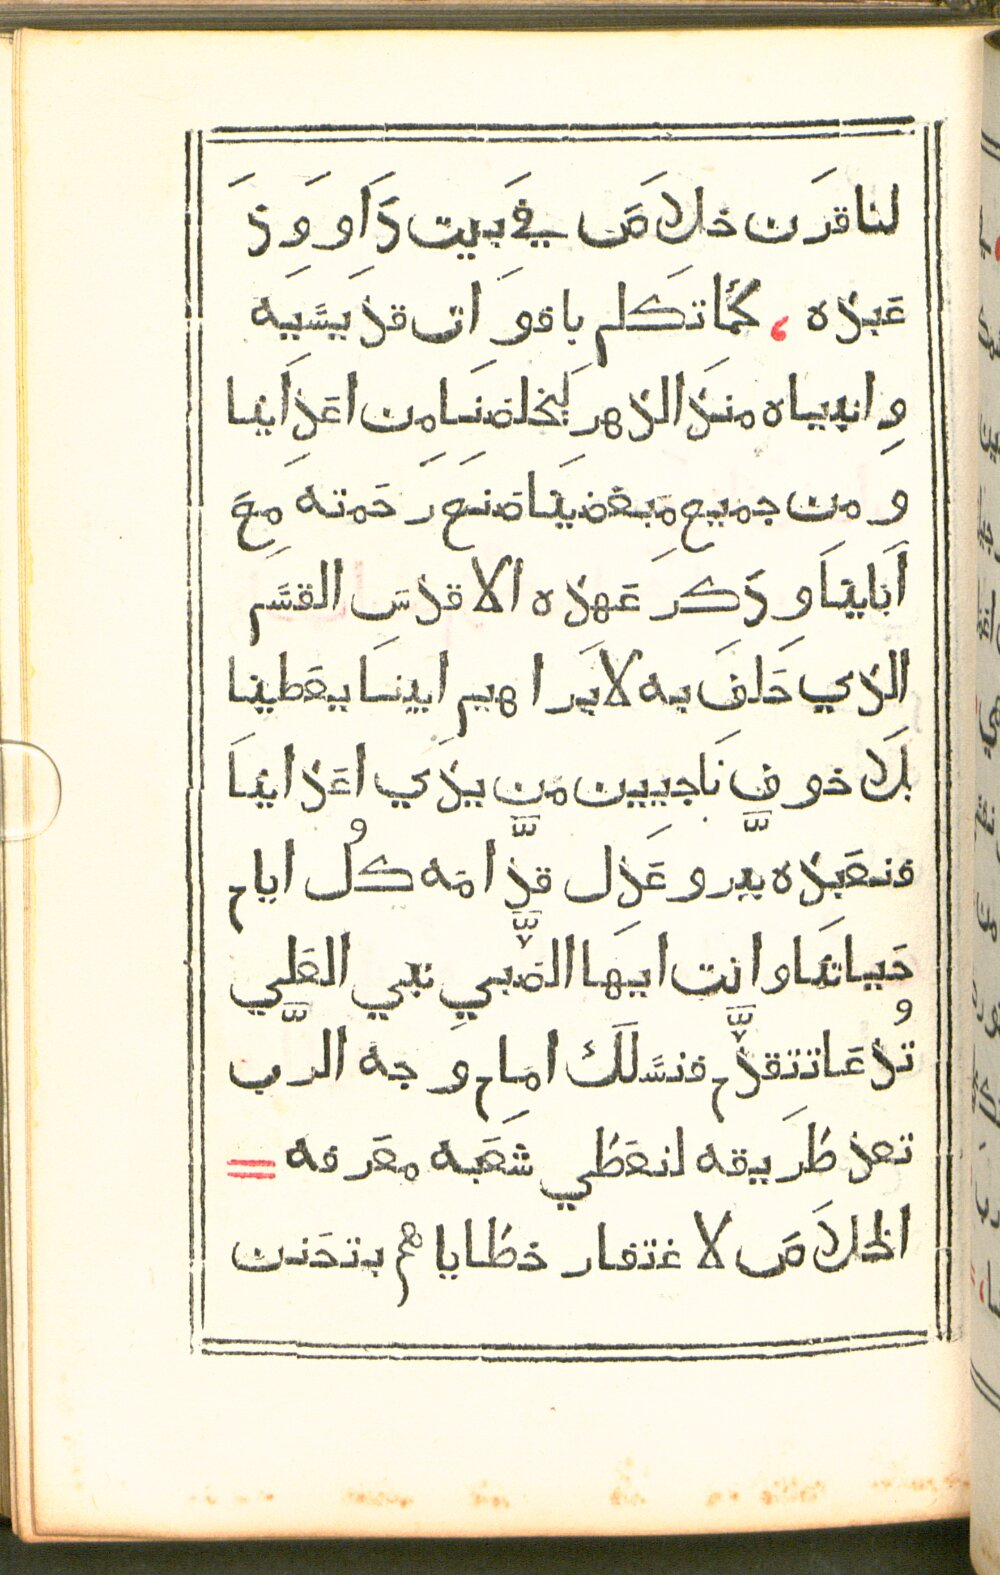 لنا قرن خلاص في بيت داوود
عبده ، كما تكلم بافواق قديسيه
وانبياه منذ الدهر ليخلصنا من اعداينا
ومن جميع مبغضينا صنع رحمته مع
اباينا وذكر عهده الاقدس القسم
الذي حلف به لابراهيم ابينا يعطينا
بلا خوف ناجيين من يدي اعداينا
فنعبده ببر وعدل قدامه كل ايام
حياتنا وانت ايها الصبي نبي العلي
تدعا تتقدم فنسلك امام وجه الرب
تعد طريقه لنعطي شعبه معرفه
الخلاص لاغتفار خطاياهم بتحنن